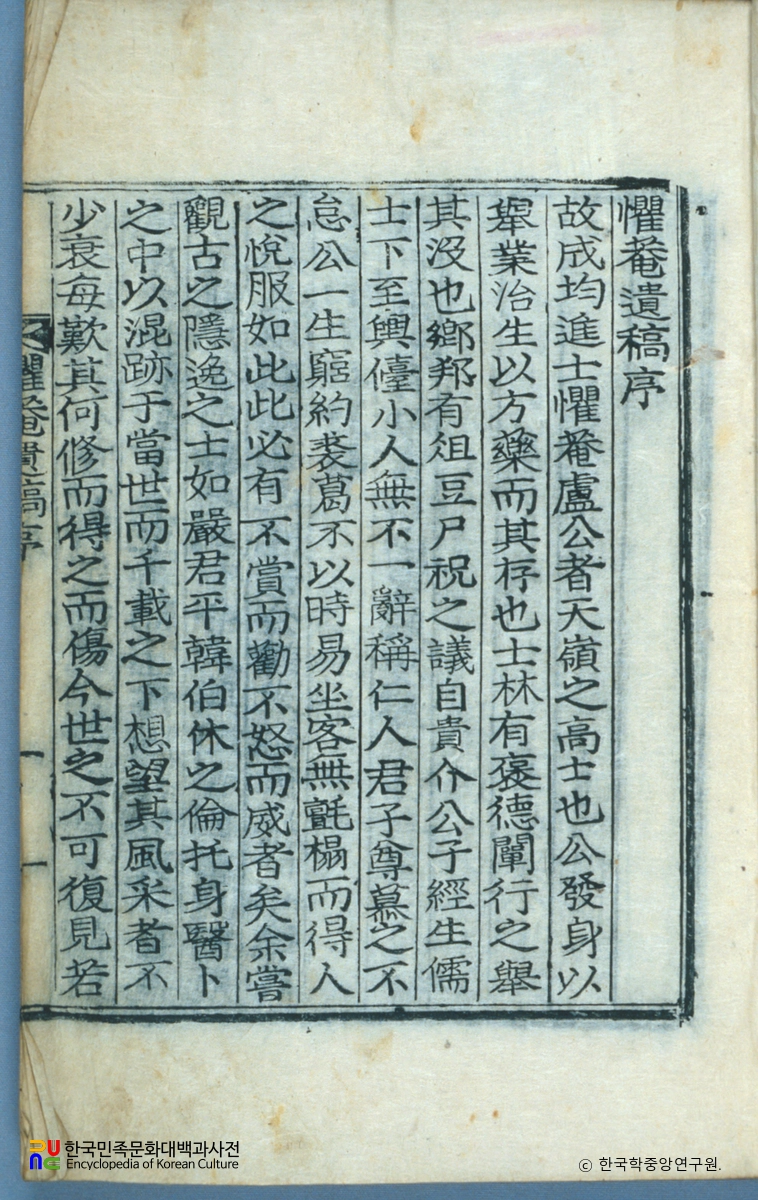 懼菴遺稿序
故成均進士懼菴盧公者天嶺之高士也公發身以
舉業治生以方藥而其存也士林有褒德闡行之舉
其沒也鄉邦有俎豆尸祝之議自貴介公子經生儒
士下至輿儓小人無不一辭稱仁人君子尊慕之不
怠公一生窮約裘葛不以時易坐客無氈榻而得人
之悅服如此此必有不賞而勸不怒而威者矣余嘗
觀古之隱逸之士如嚴君平韓伯休之倫托身醫卜
之中以混跡于當世而千載之下想望其風采者不
少衰每歎其何修而得之而傷今世之不可復見若
懼菴遺稿序
一
한국민족문화대백과사전
Encyclopedia of Korean Culture
ⓒ 한국학중앙연구원.